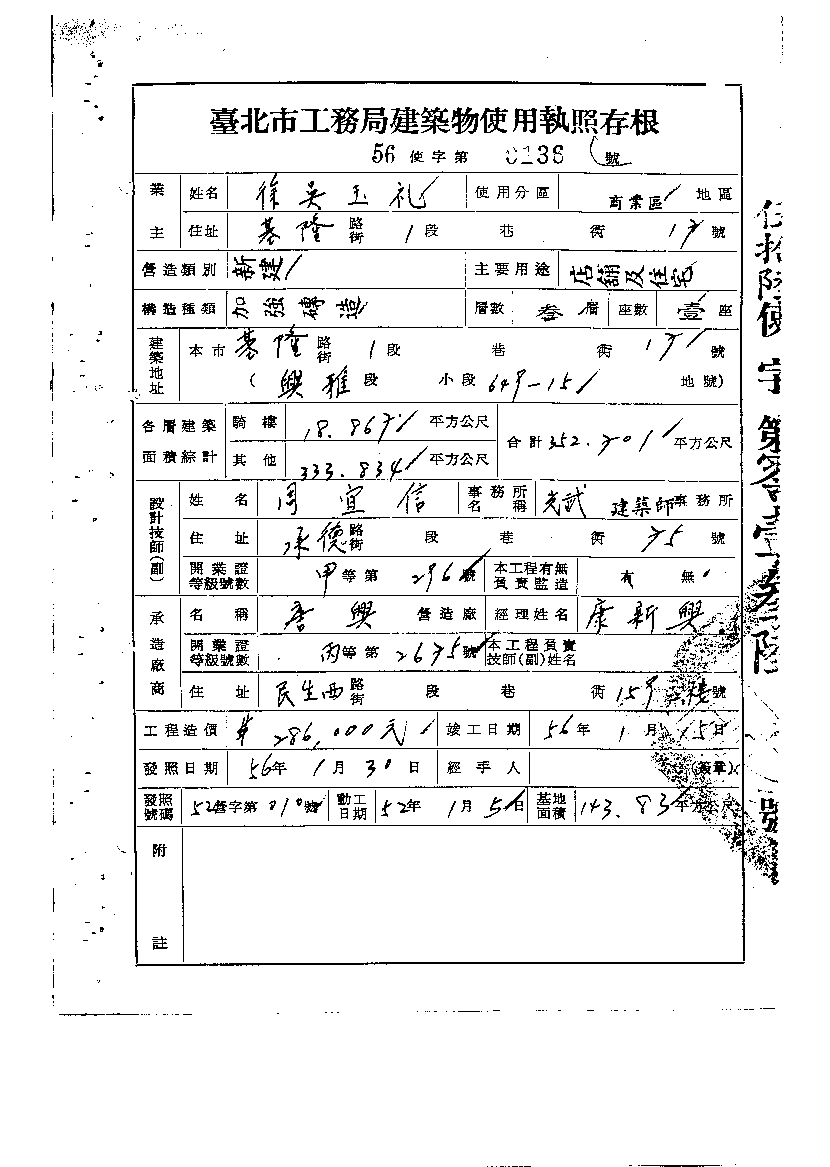 臺北市工務局建築物使用執照存根
56 使字第 0136 號
業主 姓名 徐吳玉礼 使用分區 商業區 地區
住址 基隆 路街 1 段 巷 街 號
營造類別 新建 主要用途 店舖及住宅
構造種類 加強磚造 層數 叁層 座數 壹座
建築地址 本市 基隆 路街 1 段 巷 街 號
( 興雅 段 小段 649-15 地號)
各層建築面積綜計 騎樓 18.867 平方公尺 合計 352.701 平方公尺
其他 333.834 平方公尺
設計技師(副) 姓名 周宜信 事務所名稱 光武 建築師事務所
住址 承德 路街 段 巷 街 75 號
開業證等級號數 甲等第 296 號 本工程有無負責監造 有 無
承造廠商 名稱 唐興 營造廠 經理姓名 康新興
開業證等級號數 丙等第 2675 號 本工程負責技師(副)姓名
住址 民生西 路街 段 巷 街 159 號
工程造價 $286,000元 竣工日期 56年 1月 15日
發照日期 56年 1月 30日 經手人 (簽章)
發照號碼 52營字第 010 號 動工日期 52年 1月 5日 基地面積 143.83 平方公尺
附註
伍拾陸使字第零壹叁陸號